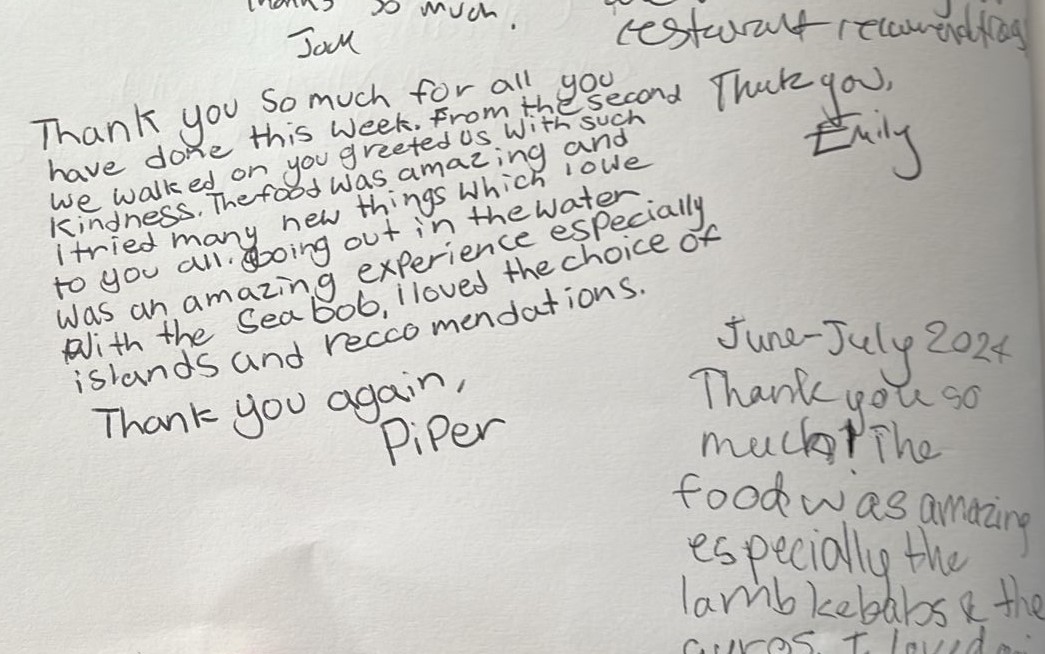 Thanks so much.
Jack
Thank you so much for all you
have done this week. From the second
we walked on you greeted us with such
kindness. The food was amazing and
I tried many new things which i owe
to you all. Going out in the water
was an amazing experience especially
with the Seabob, i loved the choice of
islands and reccomendations.
Thank you again,
Piper
Thank you,
Emily
June-July 2024
Thank you so
much! The
food was amazing
especially the
lamb kebabs & the
gyros. I loved